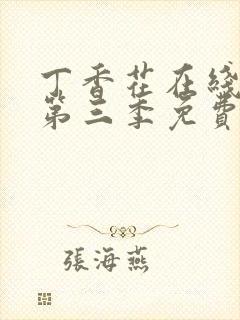 丁香茬在綫
第三季免費
張海燕